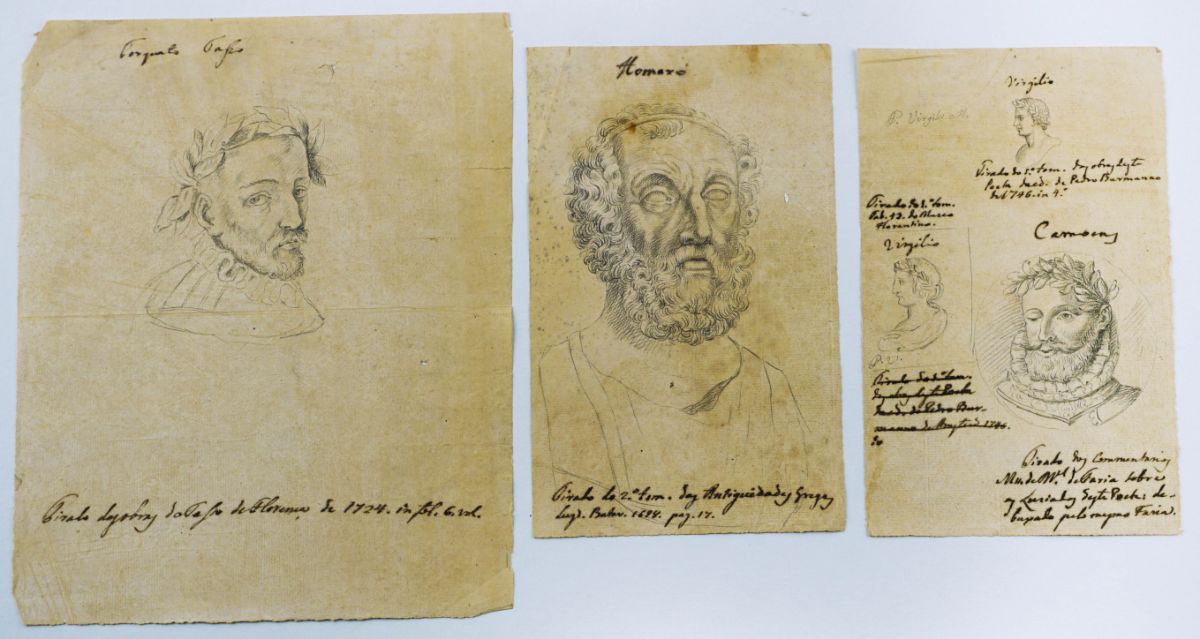 Torquato Tasso
Tirado das obras do Tasso de Florença de 1724. in fol. 6. vol.
Homero
Tirado do 2.º tom. das Antiguidades Gregas
Lugd. Batav. 1698. pag. 17.
Virgilio
P. Virgilio M.
Tirado do 1.º tom. das obras deste
Poeta da ed. de Pedro Burmanno
de 1746. in 4.º
Tirado do 2.º tom.
Tab. 43. do Museo
Florentino.
Virgilio
P. V.
Tirado do 1.º tom.
das obras deste Poeta
da ed. de Pedro Bur-
manno de 1746.
do
Camoens
Tirado dos Commentarios
Mss. de M.el de Faria sobre
as Luziadas deste Poeta: de-
buxado pelo mesmo Faria.